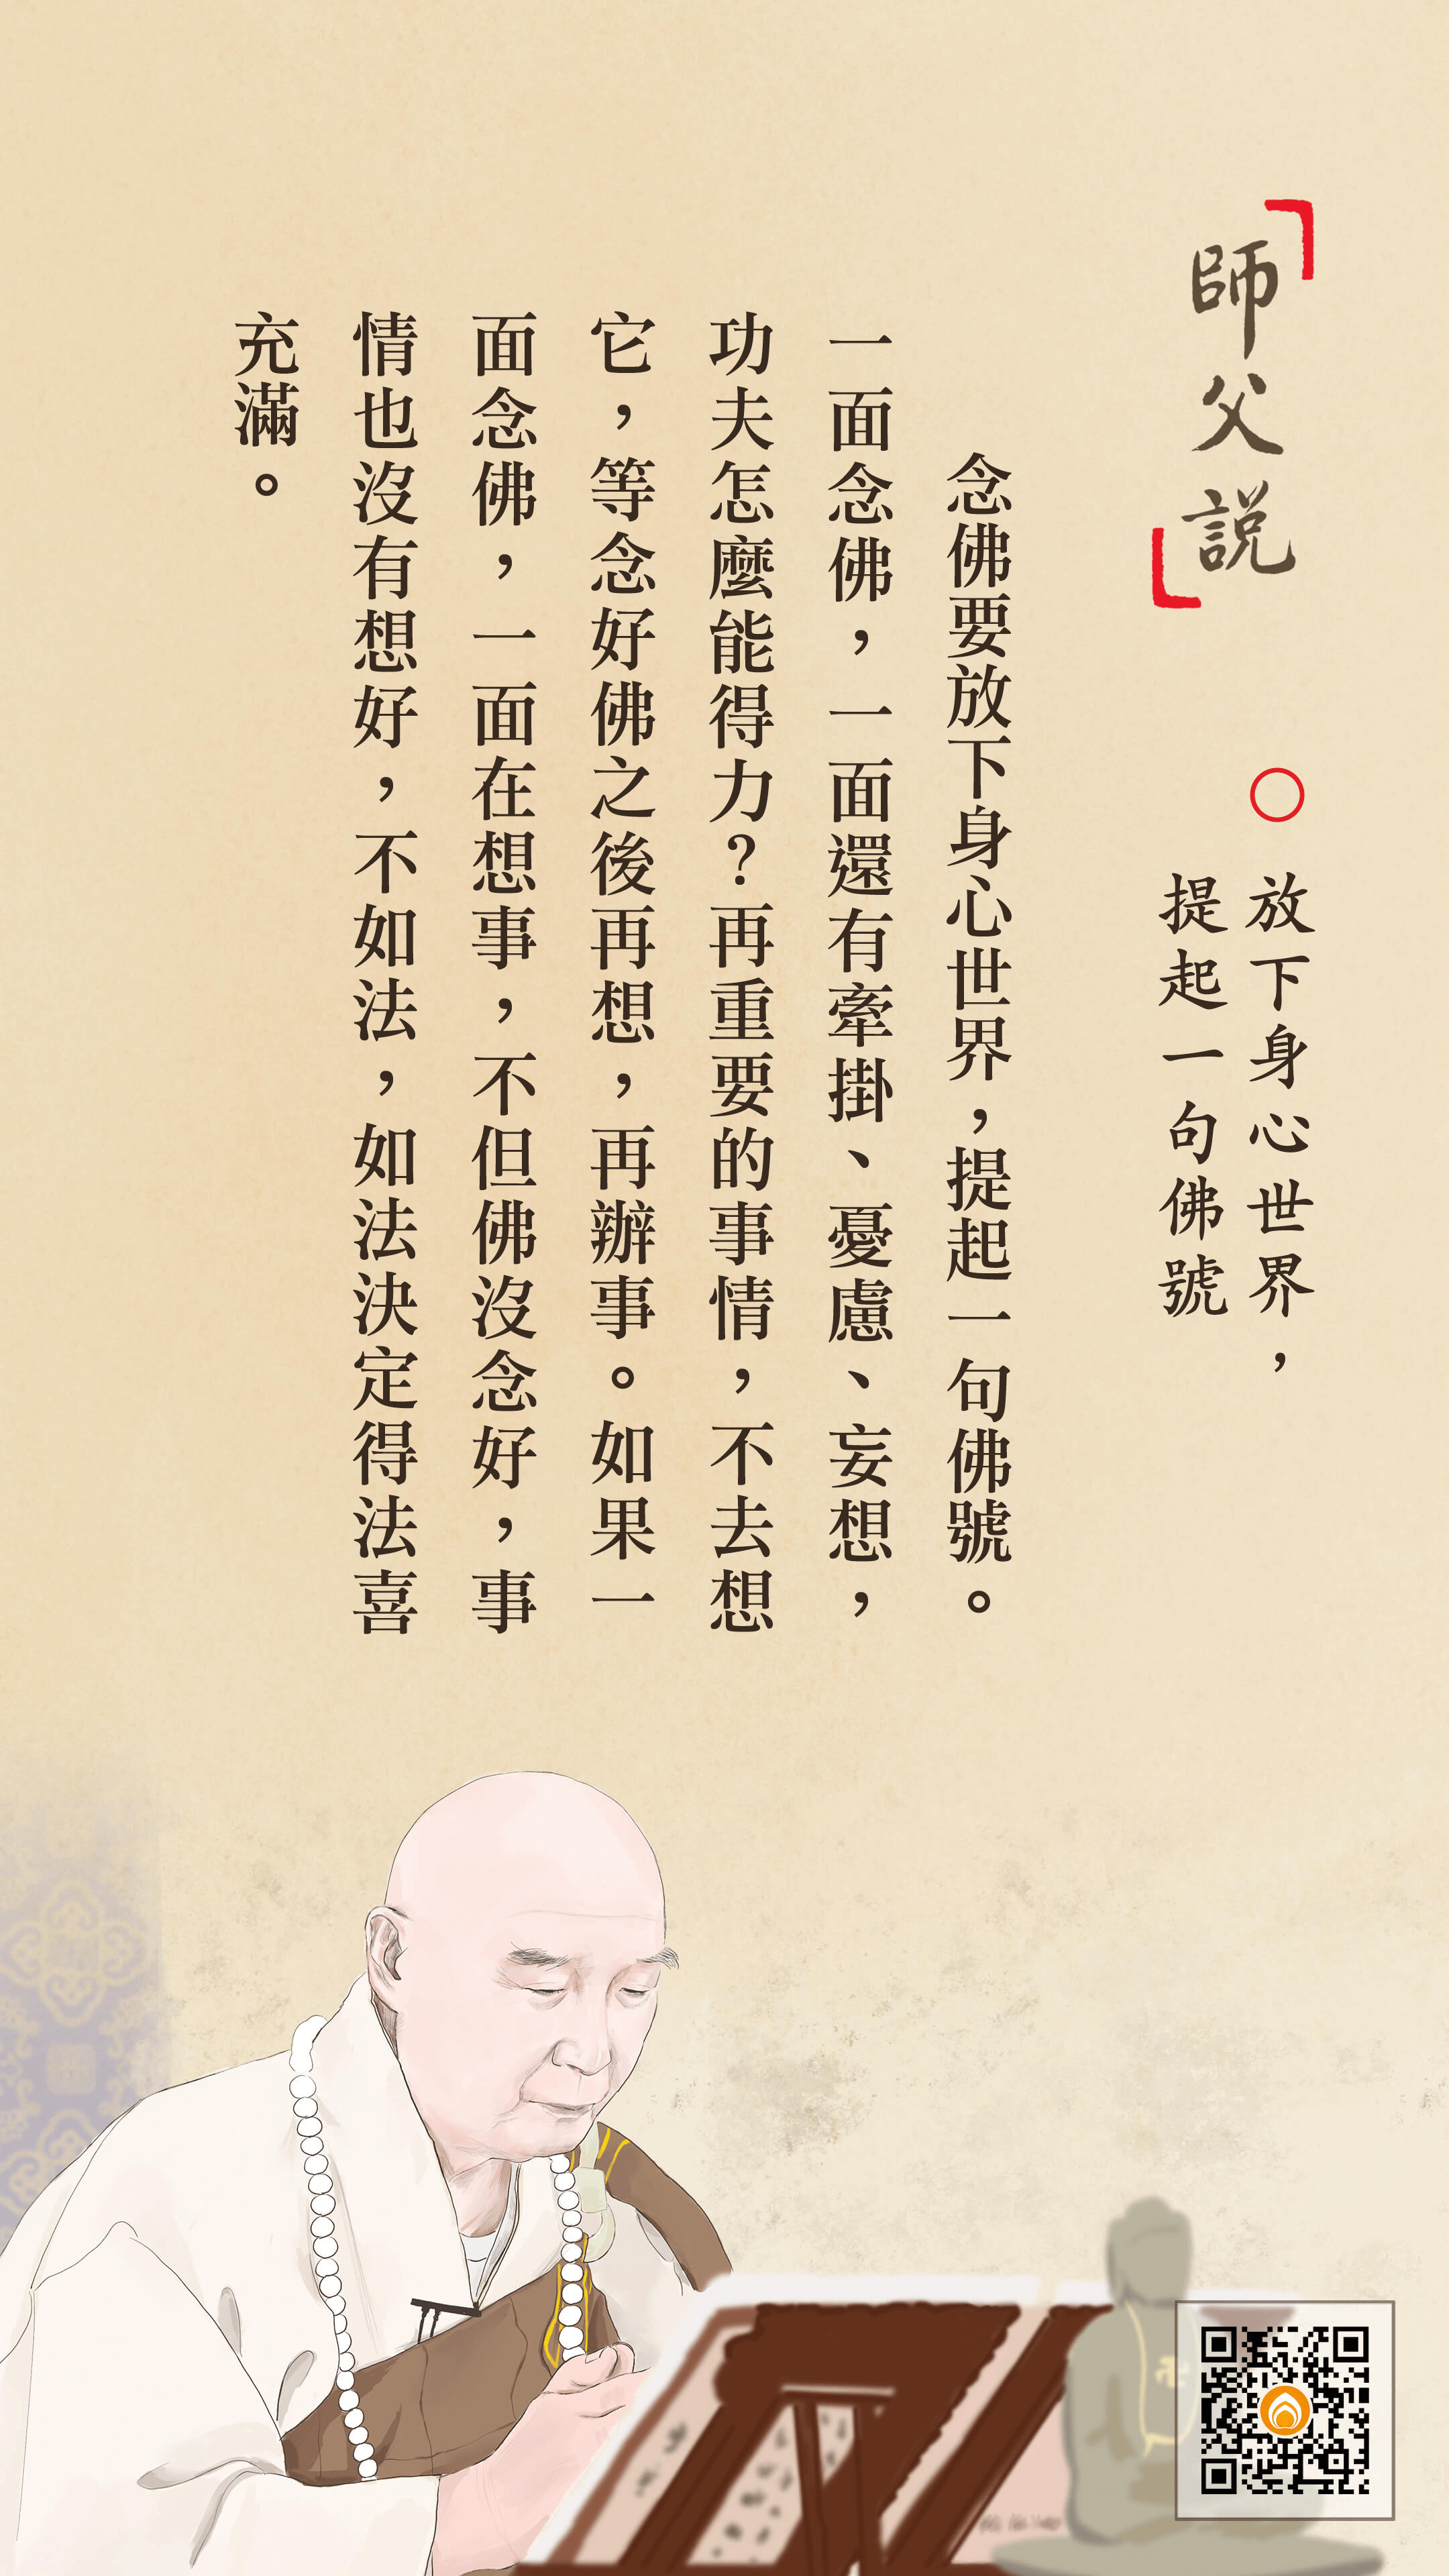 師父說
放下身心世界，
提起一句佛號
念佛要放下身心世界，提起一句佛號。
一面念佛，一面還有牽掛、憂慮、妄想，
功夫怎麼能得力？再重要的事情，不去想
它，等念好佛之後再想，再辦事。如果一
面念佛，一面在想事，不但佛沒念好，事
情也沒有想好，不如法，如法決定得法喜
充滿。